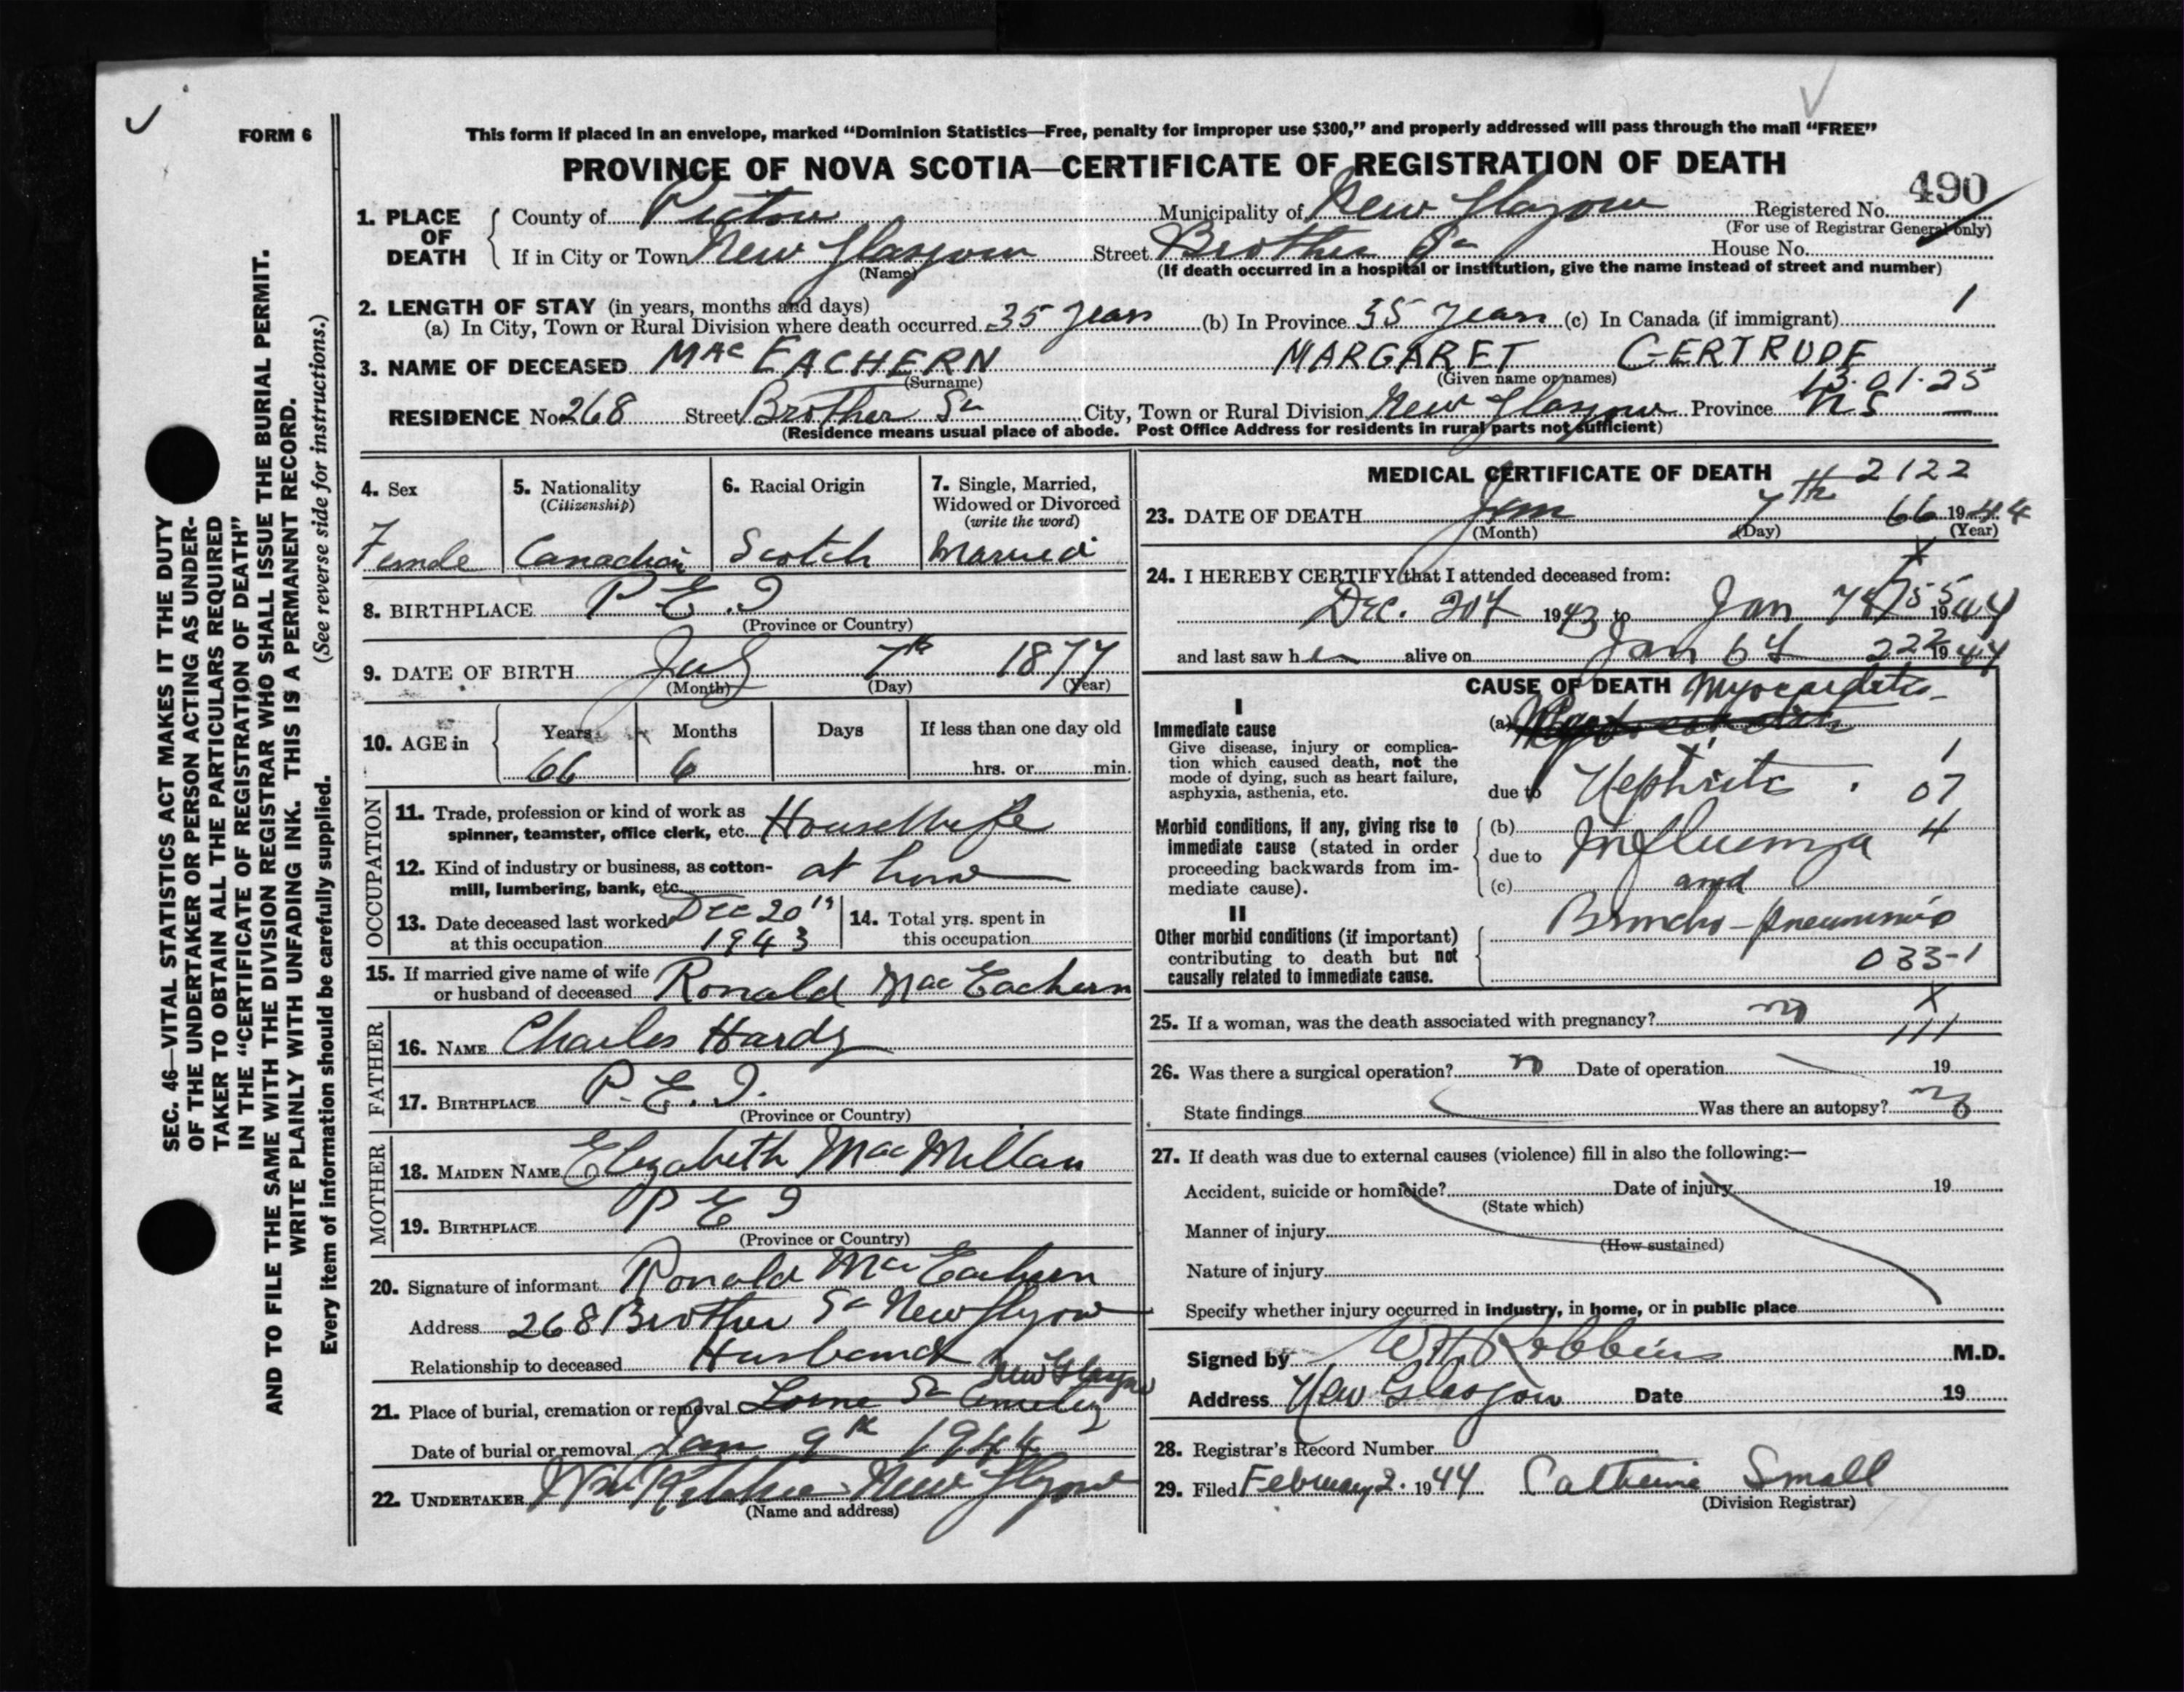 FORM 6
This form if placed in an envelope, marked “Dominion Statistics—Free, penalty for improper use $300,” and properly addressed will pass through the mail “FREE”
PROVINCE OF NOVA SCOTIA—CERTIFICATE OF REGISTRATION OF DEATH
490
1. PLACE OF DEATH
County of Pictou Municipality of New Glasgow Registered No.
(For use of Registrar General only)
If in City or Town New Glasgow Street Brother St House No.
(Name) (If death occurred in a hospital or institution, give the name instead of street and number)
2. LENGTH OF STAY (in years, months and days) 1
(a) In City, Town or Rural Division where death occurred 35 years (b) In Province 35 years (c) In Canada (if immigrant)
3. NAME OF DECEASED MacEACHERN MARGARET GERTRUDE
(Surname) (Given name or names) 13·01·25
RESIDENCE No 268 Street Brother St City, Town or Rural Division New Glasgow Province NS
(Residence means usual place of abode. Post Office Address for residents in rural parts not sufficient)
SEC. 46—VITAL STATISTICS ACT MAKES IT THE DUTY
OF THE UNDERTAKER OR PERSON ACTING AS UNDER-
TAKER TO OBTAIN ALL THE PARTICULARS REQUIRED
IN THE “CERTIFICATE OF REGISTRATION OF DEATH”
AND TO FILE THE SAME WITH THE DIVISION REGISTRAR WHO SHALL ISSUE THE BURIAL PERMIT.
WRITE PLAINLY WITH UNFADING INK. THIS IS A PERMANENT RECORD.
Every item of information should be carefully supplied. (See reverse side for instructions.)
4. Sex
Female
5. Nationality
(Citizenship)
Canadian
6. Racial Origin
Scotch
7. Single, Married,
Widowed or Divorced
(write the word)
Married
8. BIRTHPLACE P.E.I
(Province or Country)
9. DATE OF BIRTH July 7th 1877
(Month) (Day) (Year)
10. AGE in
Years Months Days If less than one day old
66 6 hrs. or min.
OCCUPATION
11. Trade, profession or kind of work as
spinner, teamster, office clerk, etc. Housewife
12. Kind of industry or business, as cotton-
mill, lumbering, bank, etc. at home
13. Date deceased last worked Dec 20th
at this occupation 1943
14. Total yrs. spent in
this occupation
15. If married give name of wife
or husband of deceased Ronald MacEachern
FATHER
16. NAME Charles Hardy
17. BIRTHPLACE P.E.I.
(Province or Country)
MOTHER
18. MAIDEN NAME Elizabeth MacMillan
19. BIRTHPLACE P E I
(Province or Country)
20. Signature of informant Ronald MacEachern
Address 268 Brother St New Glasgow
Relationship to deceased Husband
New Glasgow
21. Place of burial, cremation or removal Lorne St Cemetery
Date of burial or removal Jan 9th 1944
22. UNDERTAKER New Glasgow
(Name and address)
MEDICAL CERTIFICATE OF DEATH
2122
23. DATE OF DEATH Jan 7th 66 1944
(Month) (Day) (Year)
24. I HEREBY CERTIFY that I attended deceased from:
Dec. 20th 1943 to Jan 7th 1944
and last saw her alive on Jan 6th 222 1944
CAUSE OF DEATH Myocarditis
I
Immediate cause
Give disease, injury or complica-
tion which caused death, not the
mode of dying, such as heart failure,
asphyxia, asthenia, etc.
(a)
due to Nephritis
1
07
Morbid conditions, if any, giving rise to
immediate cause (stated in order
proceeding backwards from im-
mediate cause).
(b) 4
due to Influenza
(c) and
II
Other morbid conditions (if important)
contributing to death but not
causally related to immediate cause.
Broncho-pneumonia
033-1
25. If a woman, was the death associated with pregnancy? no
111
26. Was there a surgical operation? no Date of operation 19
State findings Was there an autopsy? no
27. If death was due to external causes (violence) fill in also the following:—
Accident, suicide or homicide? Date of injury 19
(State which)
Manner of injury
(How sustained)
Nature of injury
Specify whether injury occurred in industry, in home, or in public place
Signed by WH Robbins M.D.
Address New Glasgow Date 19
28. Registrar's Record Number
29. Filed February 2. 1944 Catherine Small
(Division Registrar)